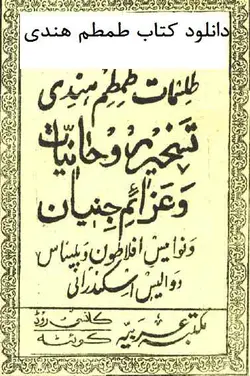 دانلود کتاب طمطم هندی
طلسمات طمطم ہندی
تسخیر روحانیات
وعزائم جنیان
ونوامیس افلاطون وبلیناس
دوالیس اسکندرانی
مکتبہ عربیہ
کانسی روڈ
کوئٹہ